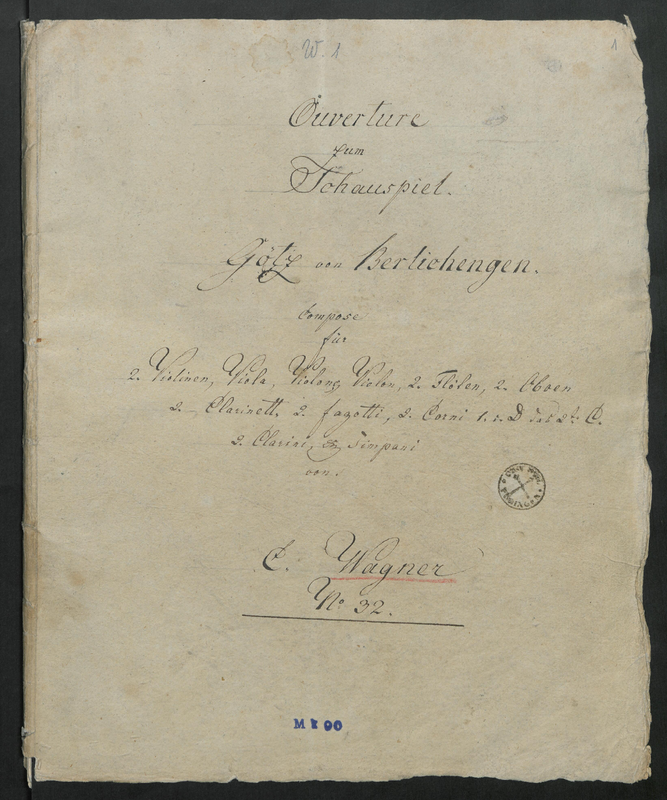 W. 1
1
Ouverture
zum
Schauspiel.
Götz von Berlichengen.
Compose
für
2. Violinen, Viola, Violon, 2. Flöten, 2. Oboen
2. Clarinett. 2. fagotti, 2. Corni 1. in D das 2te C.
2. Clarini, & Timpani
von.
C. Wagner
No 32.